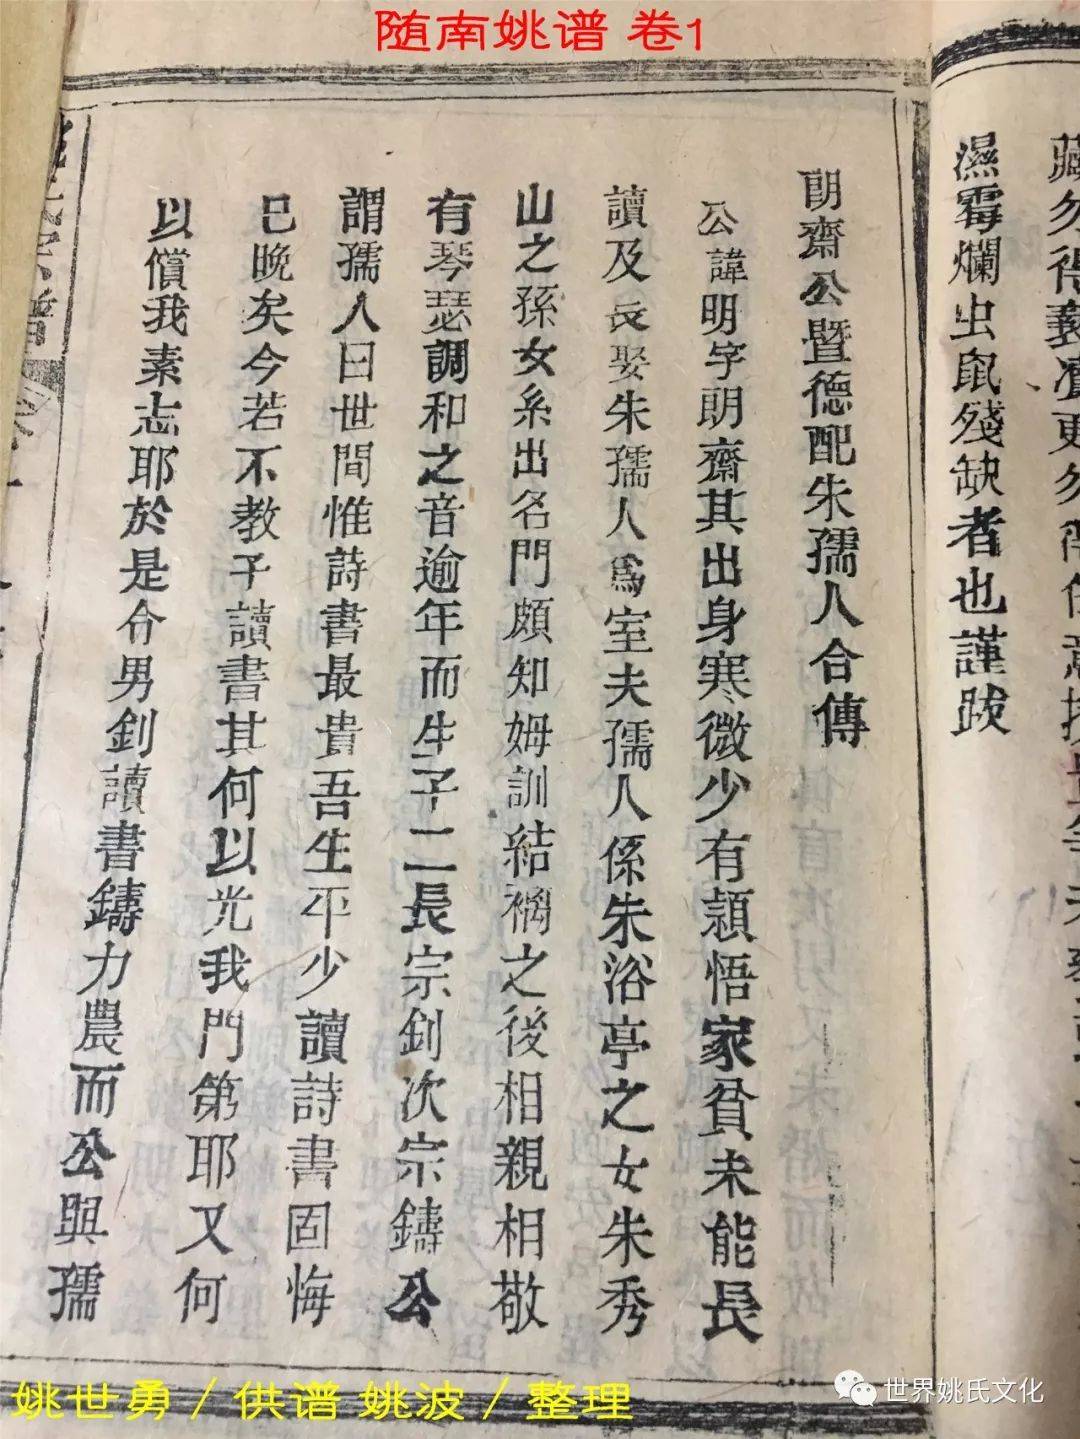 随南姚谱 卷1
濕霉爛虫鼠殘缺者也謹跋
朗齋公暨德配朱孺人合傳
公諱明字朗齋其出身寒微少有頴悟家貧未能長
讀及長娶朱孺人爲室夫孺人係朱浴亭之女朱秀
山之孫女系出名門頗知姆訓結褵之後相親相敬
有琴瑟調和之音逾年而生子二長宗釗次宗鑄公
謂孺人曰世間惟詩書最貴吾生平少讀詩書固悔
已晚矣今若不教子讀書其何以光我門第耶又何
以償我素志耶於是令男釗讀書鑄力農而公與孺
姚世勇／供谱 姚波／整理
世界姚氏文化